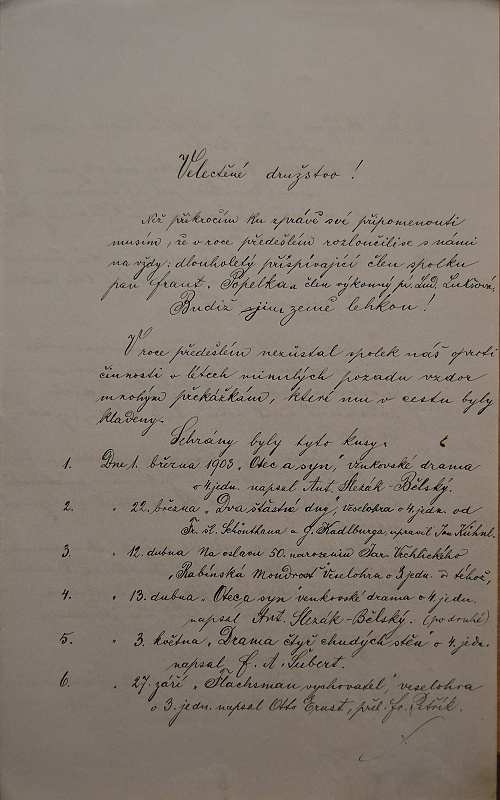 Velectěné družstvo!
Než přikročím ku zprávě své připomenouti
musím, že v roce předešlém rozloučilise s námi
na vždy: dlouholetý přispívající člen spolku
pan Frant. Popelka a člen výkonný pí. Lud. Lukšová.
Budiž jim země lehkou!
V roce předešlém nezůstal spolek náš oproti
činnosti v létech minulých pozadu vzdor
mnohým překážkám, které mu v cestu byly
kladeny.
Sehrány byly tyto kusy.
1. Dne 1. března 1903 „Otec a syn", venkovské drama
o 4 jedn. napsal Ant. Slezák-Bělský.
2. " 22. března „Dva šťastné dny", veselohra o 4 jedn. od
Fr. šl. Schönthana a G. Kadlburga, upravil Jan Kühnl.
3. " 12. dubna Na oslavu 50. narozenin Jar. Vrchlického
„Rabínská Moudrost" veselohra o 3 jedn. od téhož.
4. " 13. dubna „Otec a syn" venkovské drama o 4 jedn.
napsal Ant. Slezák-Bělský. (po druhé)
5. " 3. května „Drama čtyř chudých stěn" o 4 jedn.
napsal F. A. Šubert.
6. " 27. září „Flachsman vychovatel", veselohra
o 3. jedn. napsal Otto Ernst, přel. Fr. Petřík.